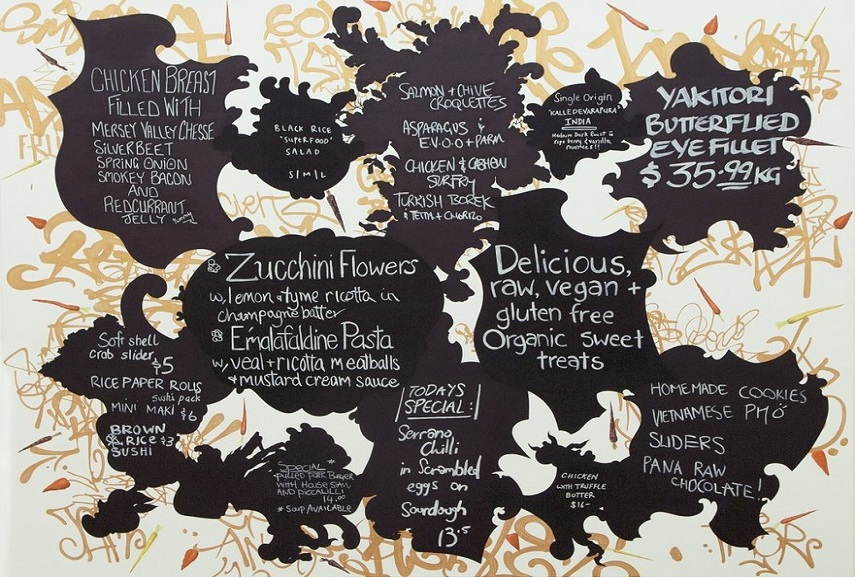 CHICKEN BREAST
FILLED WITH
MERSEY VALLEY CHESSE
SILVERBEET
SPRING ONION
SMOKEY BACON
AND
REDCURRANT
JELLY
BLACK RICE
"SUPERFOOD"
SALAD
SALMON + CHIVE
CROQUETTES
ASPARAGUS &
E.V.O.O + PARM
CHICKEN & CASHEW
TURKISH BOREK
Single Origin
INDIA
YAKITORI
BUTTERFLIED
EYE FILLET
$35.99 KG
Zucchini Flowers
w, lemon + tyme ricotta in
champagne batter
Pasta
w, veal + ricotta meatballs
+ mustard cream sauce
Delicious,
raw, vegan +
gluten free
Organic sweet
treats
Soft shell
crab slider
$5
RICE PAPER ROLLS
Sushi pack
MINI MAKI $6
BROWN
RICE $3
SUSHI
SPECIAL *
PULLED PORK BURGER
WITH HOUSE SLAW
AND PICCALILLI
14.00
* SOUP AVAILABLE
TODAYS
SPECIAL:
Serrano
Chilli
in Scrambled
eggs on
Sourdough
13.5
CHICKEN
WITH TRUFFLE
BUTTER
$16-
HOMEMADE COOKIES
VIETNAMESE PHO
SLIDERS
PANA RAW
CHOCOLATE!